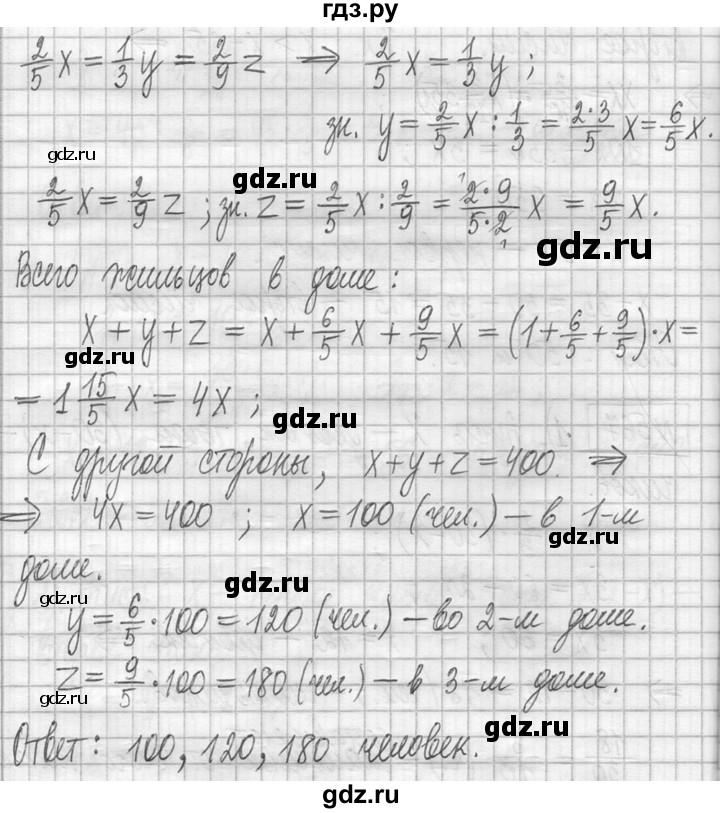 гдз.ру
2/5 x = 1/3 y = 2/9 z ⇒ 2/5 x = 1/3 y ;
зн. y = 2/5 x : 1/3 = 2·3/5 x = 6/5 x.
gdz.ru
gdz.ru
2/5 x = 2/9 z ; зн. z = 2/5 x : 2/9 = 2·9/5·2 x = 9/5 x.
gdz.ru
Всего жильцов в доме :
x + y + z = x + 6/5 x + 9/5 x = (1 + 6/5 + 9/5) · x =
gdz.ru
= 1 15/5 x = 4x ;
gdz.ru
С другой стороны, x + y + z = 400. ⇒
gdz.ru
⇒ 4x = 400 ; x = 100 (чел.) – в 1-м
gdz.ru
доме.
gdz.ru
gdz.ru
y = 6/5 · 100 = 120 (чел.) – во 2-м доме.
z = 9/5 · 100 = 180 (чел.) – в 3-м доме.
gdz.ru
gdz.ru
Ответ : 100, 120, 180 человек.
gdz.ru